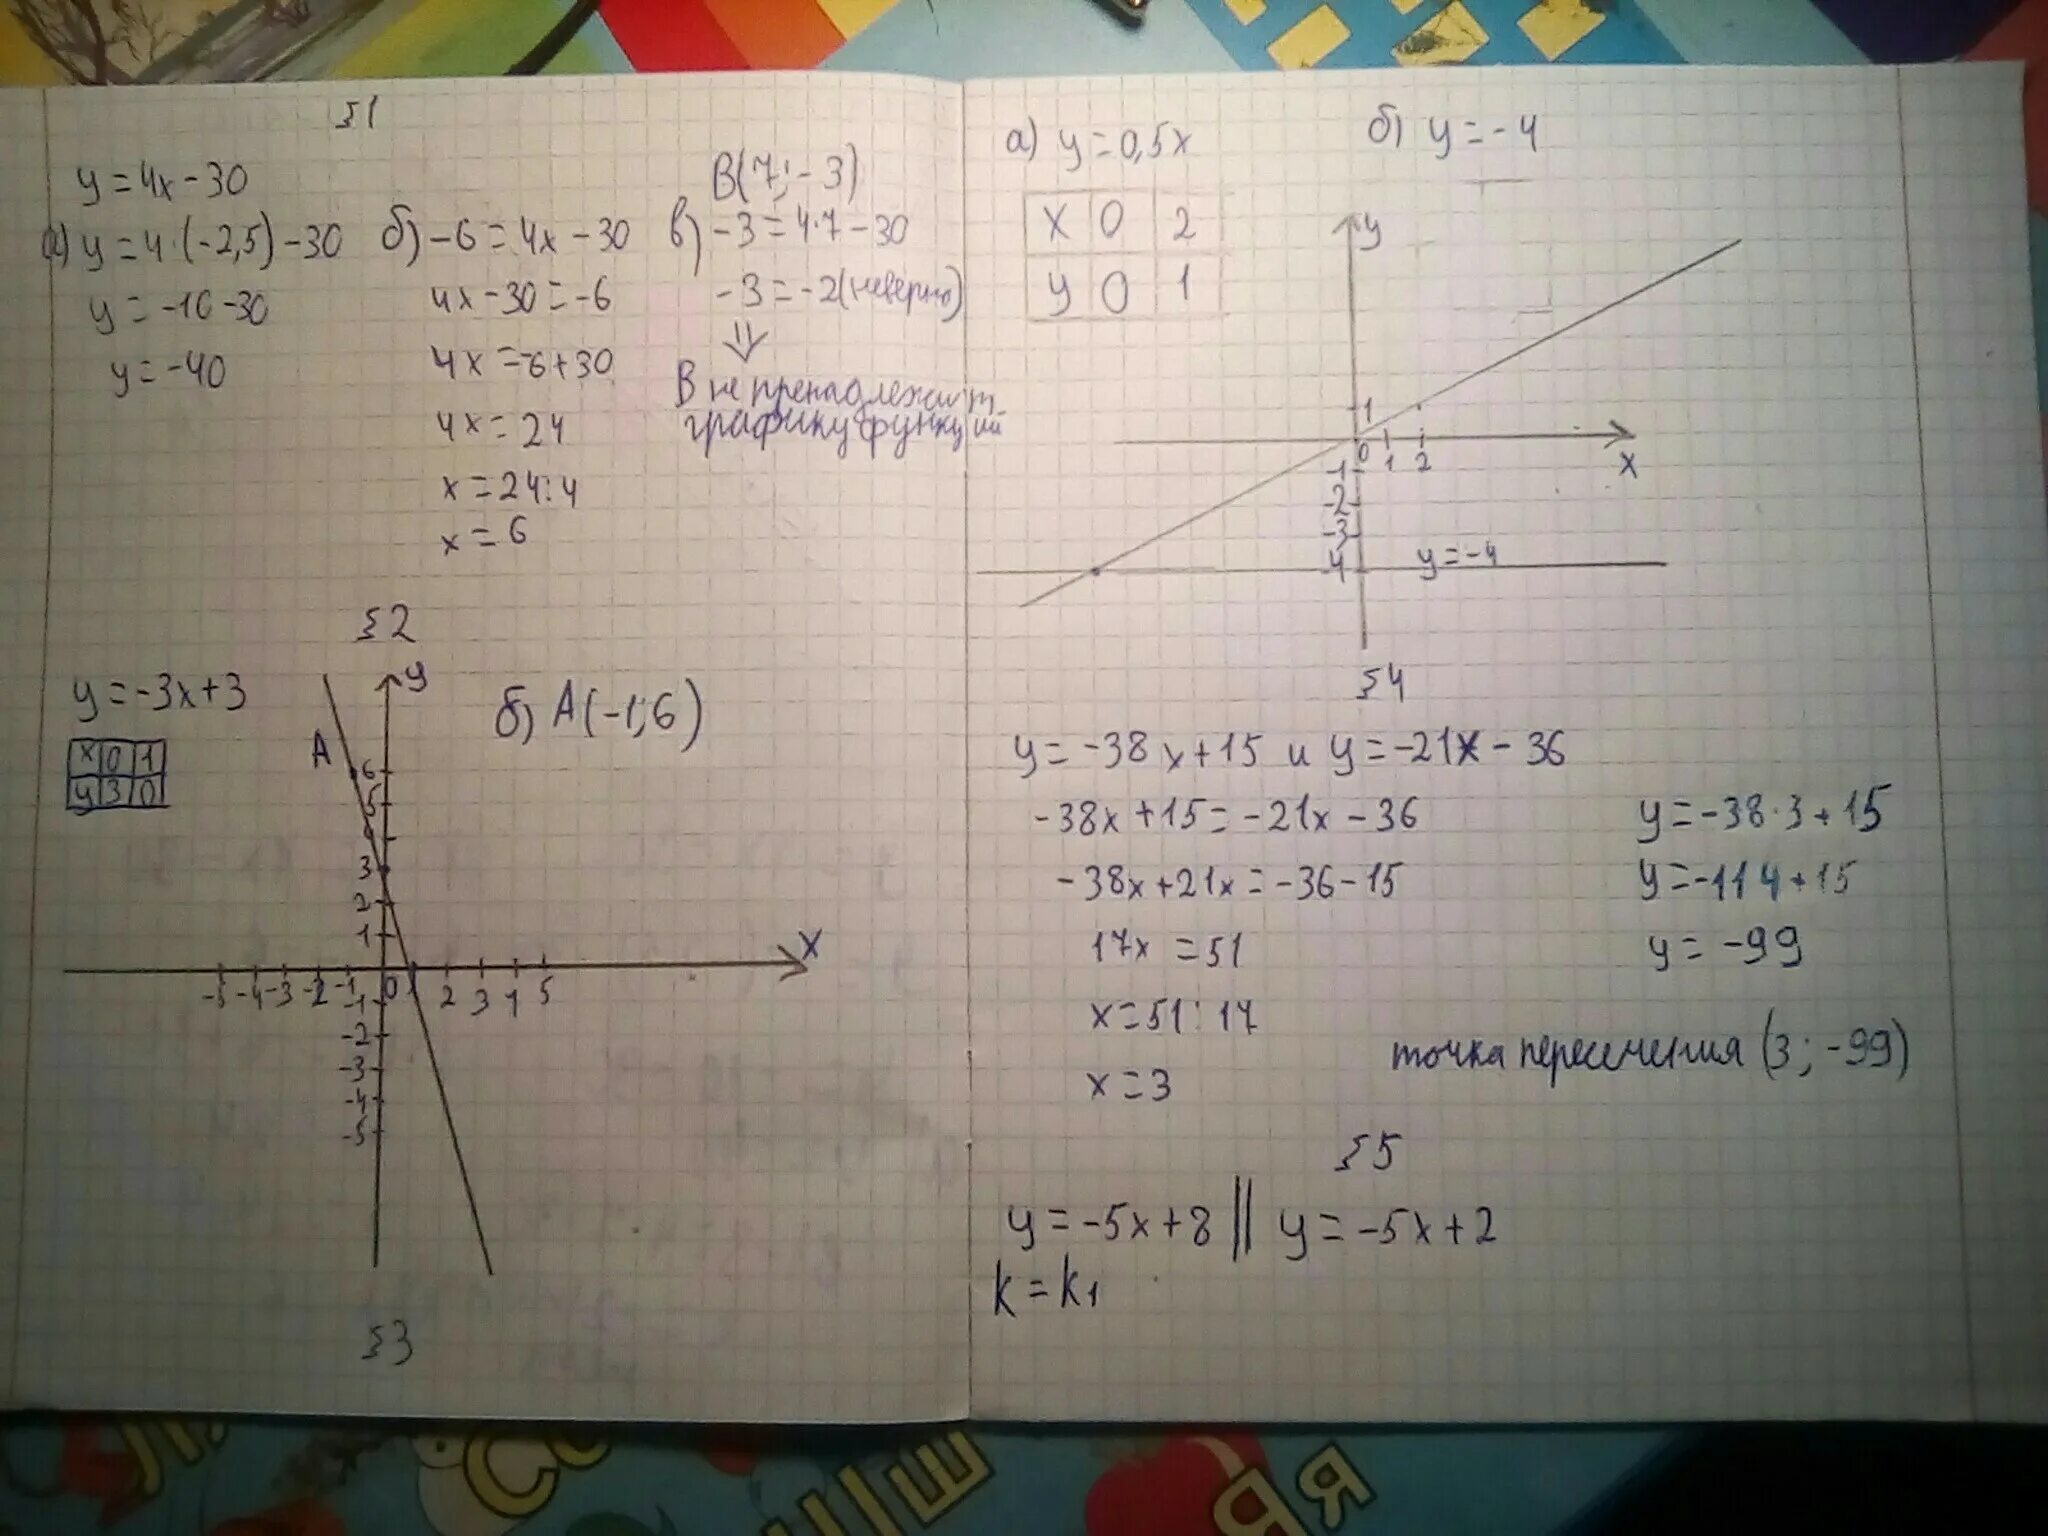 §1
y = 4x - 30
а) y = 4·(-2,5) - 30
y = -10 - 30
y = -40
б) -6 = 4x - 30
4x - 30 = -6
4x = -6 + 30
4x = 24
x = 24:4
x = 6
B(7; -3)
в) -3 = 4·7 - 30
-3 = -2 (неверно)
⇓
B не пренадлежит
графику функций
§2
y = -3x + 3
x 0 1
y 3 0
б) A(-1; 6)
A
y
6
5
4
3
2
1
-5 -4 -3 -2 -1 0 1 2 3 4 5
x
-1
-2
-3
-4
-5
§3
а) y = 0,5x
x 0 2
y 0 1
б) y = -4
y
1
0 1 2
x
-1
-2
-3
-4
y = -4
§4
y = -38x + 15 и y = -21x - 36
-38x + 15 = -21x - 36
-38x + 21x = -36 - 15
17x = 51
x = 51:17
x = 3
y = -38·3 + 15
y = -114 + 15
y = -99
точка пересечения (3; -99)
§5
y = -5x + 8 || y = -5x + 2
k = k1
СО
ЯВ